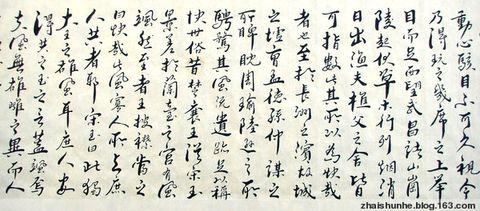 動心駭目不可久視今
乃得玩之幾席之上舉
目足西望武昌諸山岡
陵起伏草木行列烟消
日出漁夫樵父之舍皆
可指數此其所以為快哉
者也至於長洲之濱故城
之墟曹孟德孫仲謀之
所睥睨周瑜陸遜之所
騁騖其風流遺跡足以稱
快世俗昔楚襄王從宋玉
景差於蘭臺之宮有風
颯然至者王披襟當之
曰快哉此風寡人所與庶
人共者耶宋玉曰此獨
大王之雄風耳庶人安
得共之玉之言蓋諷焉
夫風無雄雌之異而人
zhaishunhe.blog.163.com